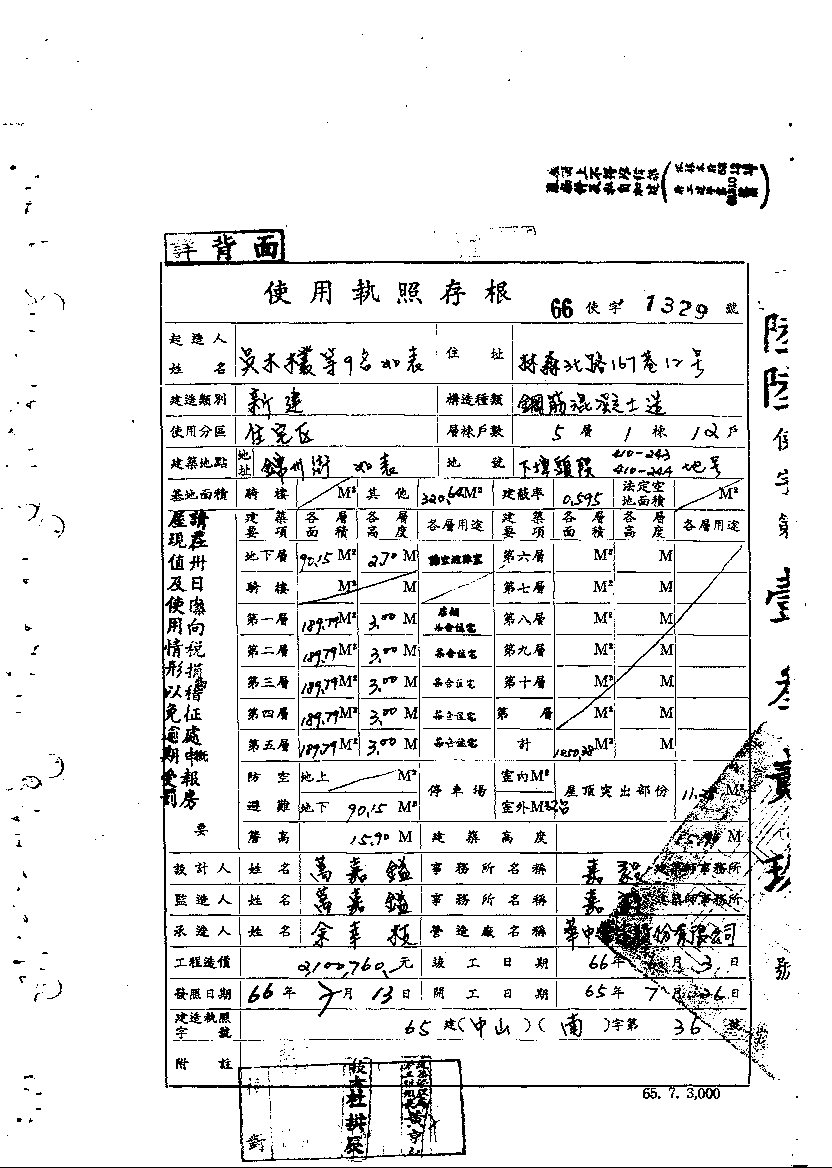 詳背面
使用執照存根
66 使字 1329 號
起造人姓名 吳木樓等9名如表 住址 林森北路167巷12号
建造類別 新建 構造種類 鋼筋混凝土造
使用分區 住宅区 層棟戶數 5層 1棟 12戶
建築地點 地址 錦州街 如表 地號 下埤頭段 410-243 410-244 地号
基地面積 騎樓 M² 其他 320.64M² 建蔽率 0.595 法定空地面積 M²
建築要項 各層面積 各層高度 各層用途 建築要項 各層面積 各層高度 各層用途
地下層 90.15 M² 2.70 M 第六層 M² M
騎樓 M² M 第七層 M² M
第一層 189.79M² 3.00 M 店舖 集合住宅 第八層 M² M
第二層 189.79M² 3.00 M 集合住宅 第九層 M² M
第三層 189.79M² 3.00 M 集合住宅 第十層 M² M
第四層 189.79M² 3.00 M 集合住宅 第 層 M² M
第五層 189.79M² 3.00 M 集合住宅 計 M²
防空避難 地上 M² 地下 90.15 M² 停車場 室內M² 室外M² 屋頂突出部份 M²
要
簷高 15.90 M 建築高度 M
設計人 姓名 萬嘉鎰 事務所名稱 嘉 建築師事務所
監造人 姓名 萬嘉鎰 事務所名稱 嘉 建築師事務所
承造人 姓名 營造廠名稱 華中 股份有限公司
工程造價 2,100,760.元 竣工日期 66年 月 3日
發照日期 66年 7月 13日 開工日期 65年 7月 26日
建造執照字號 65 建(中山)(南)字第 36 號
附註
65. 7. 3,000
請在卅日內向稅捐稽征處申報房
屋現值及使用情形以免逾期受罰
陸陸使字第壹叁貳玖號
核對